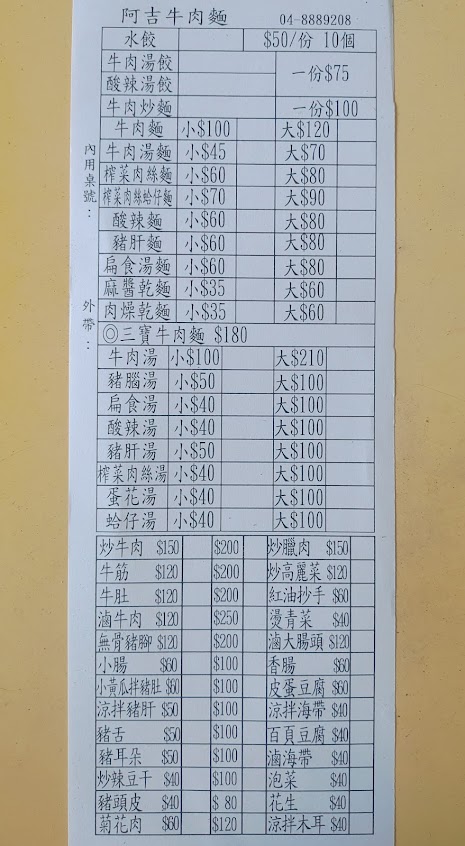 阿吉牛肉麵 04-8889208
水餃 $50/份 10個
牛肉湯餃 一份$75
酸辣湯餃
牛肉炒麵 一份$100
內用桌號：
外帶：
牛肉麵 小$100 大$120
牛肉湯麵 小$45 大$70
榨菜肉絲麵 小$60 大$80
榨菜肉絲蛤仔麵 小$70 大$90
酸辣麵 小$60 大$80
豬肝麵 小$60 大$80
扁食湯麵 小$60 大$80
麻醬乾麵 小$35 大$60
肉燥乾麵 小$35 大$60
◎三寶牛肉麵 $180
牛肉湯 小$100 大$210
豬腦湯 小$50 大$100
扁食湯 小$40 大$100
酸辣湯 小$40 大$100
豬肝湯 小$50 大$100
榨菜肉絲湯 小$40 大$100
蛋花湯 小$40 大$100
蛤仔湯 小$40 大$100
炒牛肉 $150 $200 炒臘肉 $150
牛筋 $120 $200 炒高麗菜 $120
牛肚 $120 $200 紅油抄手 $60
滷牛肉 $120 $250 燙青菜 $40
無骨豬腳 $120 $200 滷大腸頭 $120
小腸 $60 $100 香腸 $60
小黃瓜拌豬肚 $60 $100 皮蛋豆腐 $60
涼拌豬肝 $50 $100 涼拌海帶 $40
豬舌 $50 $100 百頁豆腐 $40
豬耳朵 $50 $100 滷海帶 $40
炒辣豆干 $40 $100 泡菜 $40
豬頭皮 $40 $ 80 花生 $40
菊花肉 $60 $120 涼拌木耳 $40